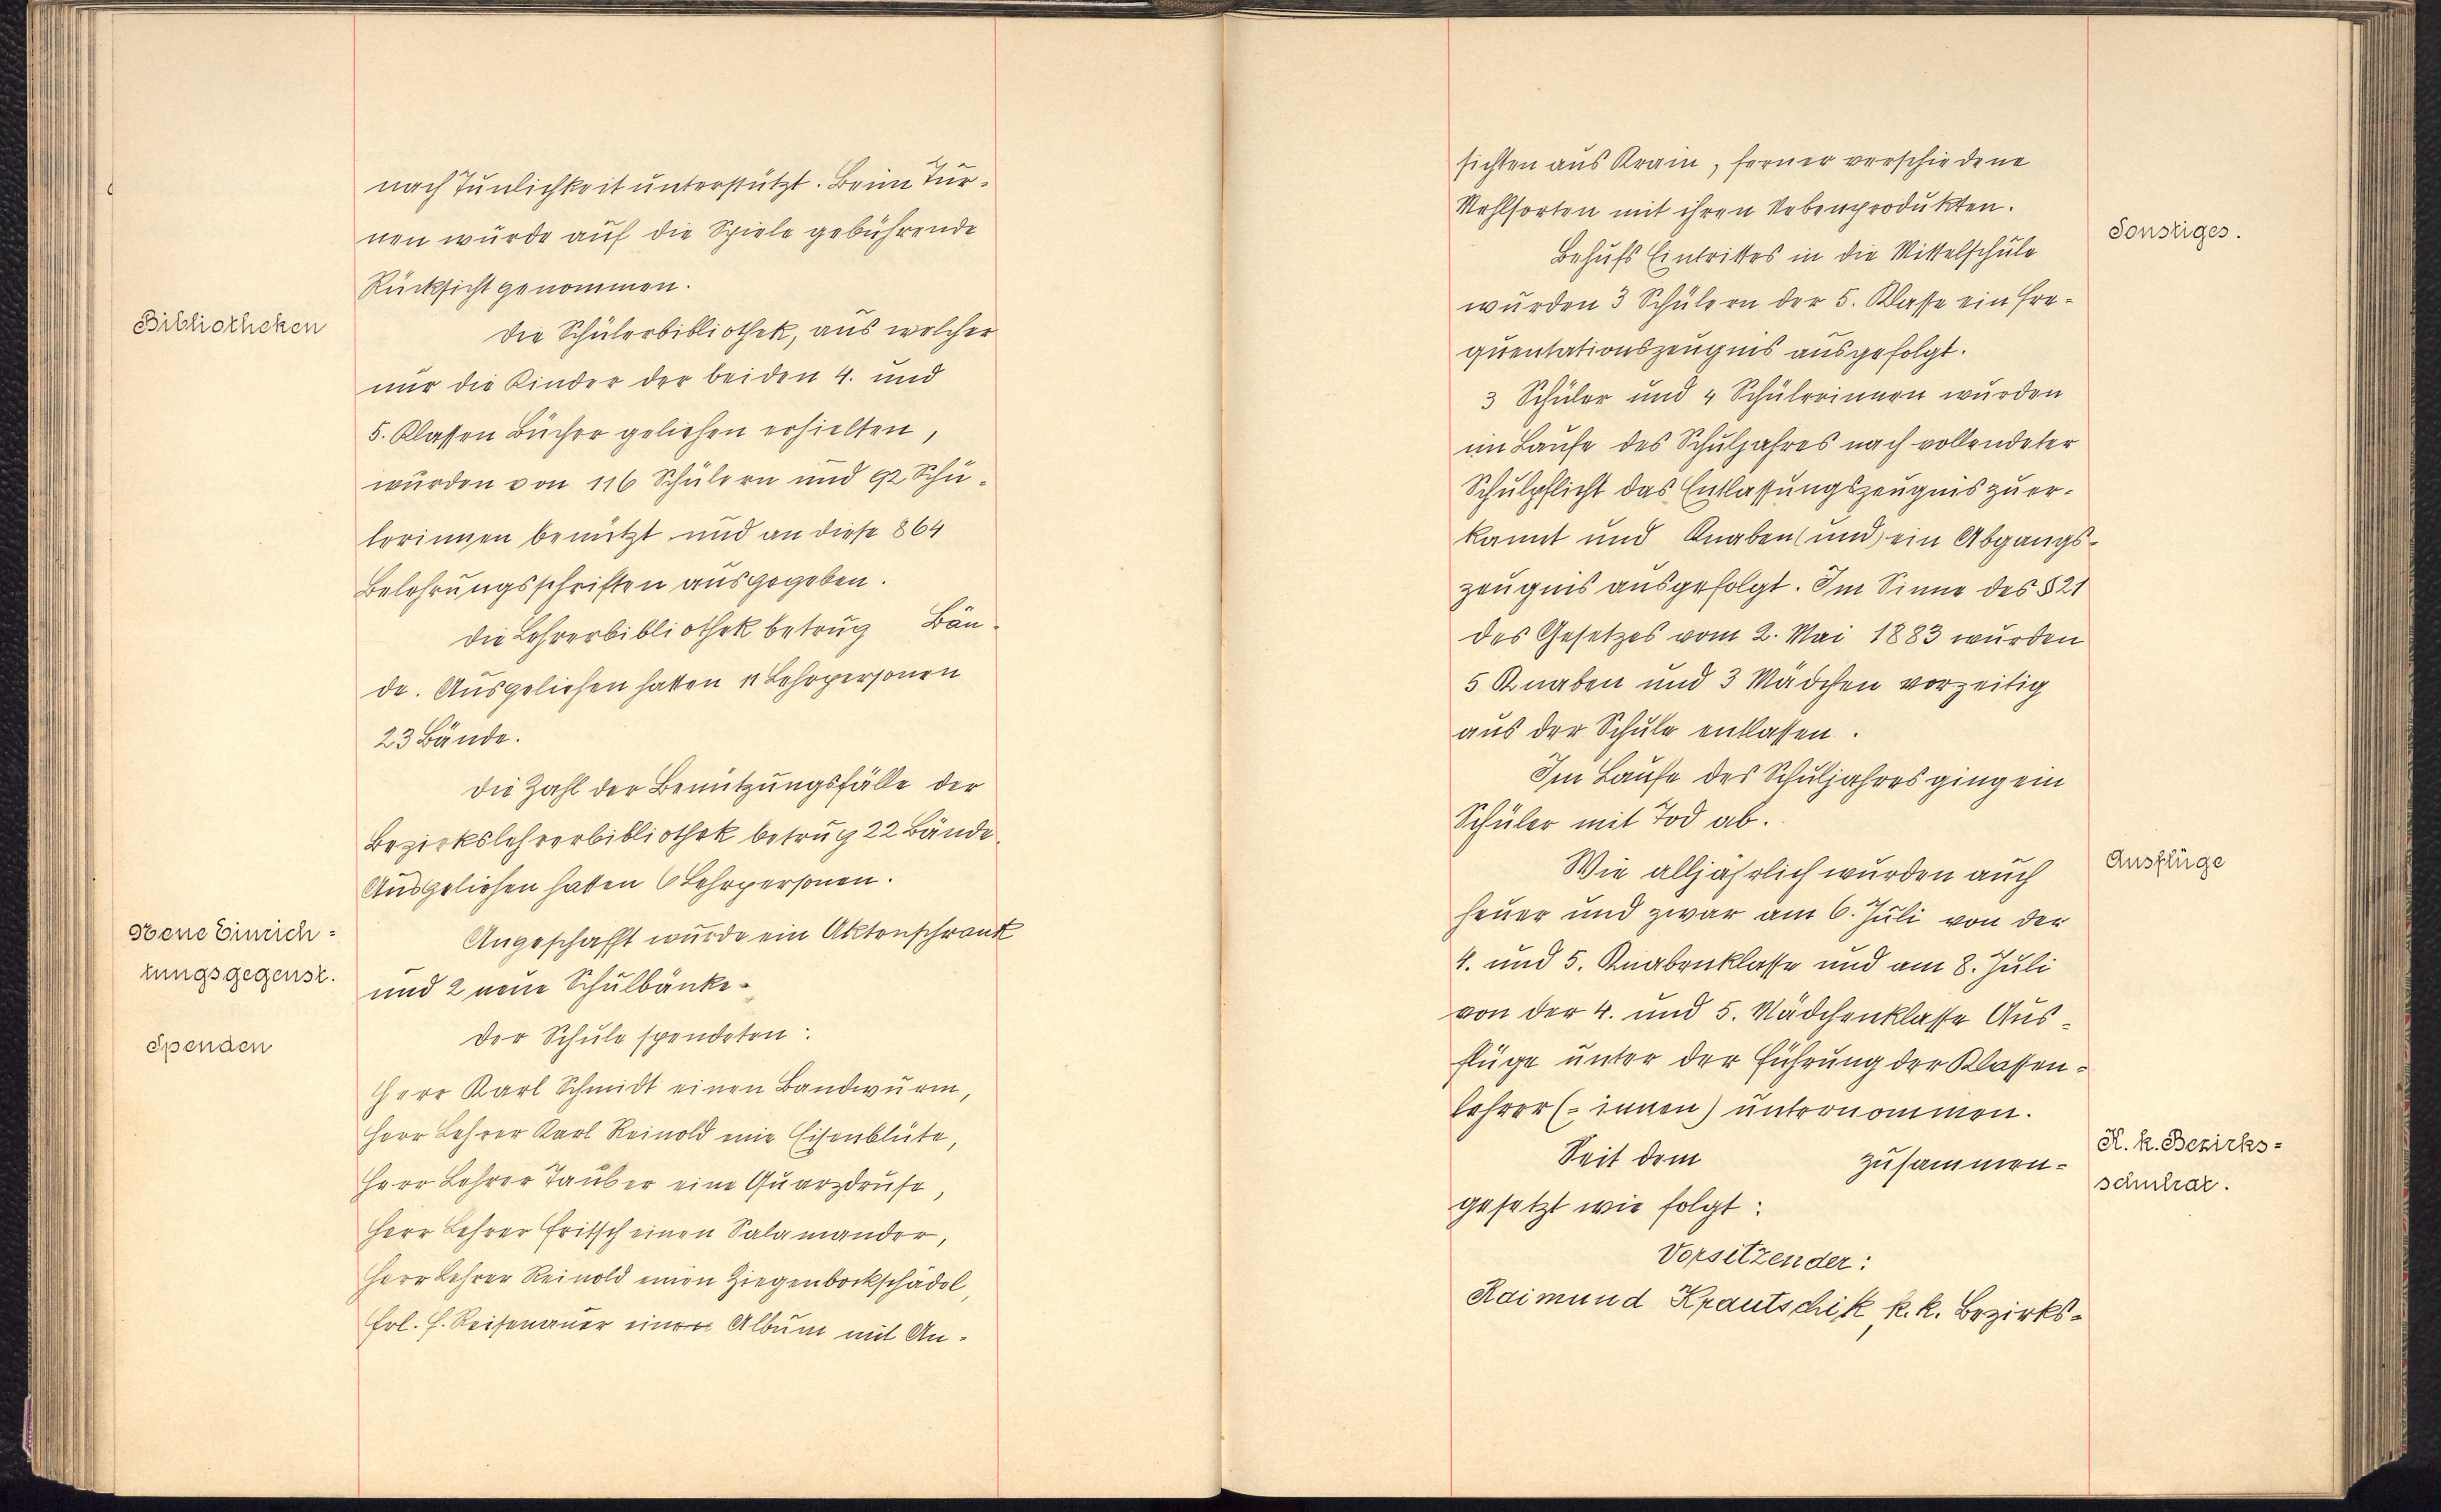 nach Tunlichkeit unterstützt. Beim Tur-
nen wurde auf die Spiele gebührende
Rücksicht genommen.
Bibliotheken
Die Schülerbibliothek, aus welcher
nur die Kinder der beiden 4. und
5. Klassen Bücher geliehen erhielten,
wurden von 116 Schülern und 92 Schü-
lerinnen benützt und an diese 864
Belehrungsschriften ausgegeben.
Die Lehrerbibliothek betrug Bän-
de. Ausgeliehen hatten 11 Lehrpersonen
23 Bände.
Die Zahl der Benützungsfälle der
Bezirkslehrerbibliothek betrug 22 Bände.
Ausgeliehen hatten 6 Lehrpersonen.
Neue Einrich=
tungsgegenst.
Angeschafft wurde ein Aktenschrank
und 2 neue Schulbänke.
Spenden
Der Schule spendeten:
Herr Karl Schmidt einen Bandwurm,
Herr Lehrer Karl Reinold eine Eisenblüte,
Herr Lehrer Tauber eine Quarzdruse,
Herr Lehrer Fritsch einen Salamander,
Herr Lehrer Reinold einen Ziegenbockschädel,
Frl. F. Reisenauer einen Album mit An-
sichten aus Krain, ferner verschiedene
Mehlsorten mit ihren Nebenprodukten.
Sonstiges.
Behufs Eintrittes in die Mittelschule
wurden 3 Schülern der 5. Klasse ein Fre-
quentationszeugnis ausgefolgt.
3 Schüler und 4 Schülerinnen wurden
im Laufe des Schuljahres nach vollendeter
Schulpflicht das Entlassungszeugnis zuer-
kannt und Knaben (und) ein Abgangs-
zeugnis ausgefolgt. Im Sinne des §21
des Gesetzes vom 2. Mai 1883 wurden
5 Knaben und 3 Mädchen vorzeitig
aus der Schule entlassen.
Im Laufe des Schuljahres ging ein
Schüler mit Tod ab.
Ausflüge
Wie alljährlich wurden auch
heuer und zwar am 6. Juli von der
4. und 5. Knabenklasse und am 8. Juli
von der 4. und 5. Mädchenklasse Aus-
flüge unter der Führung der Klassen-
lehrer (-innen) unternommen.
K. k. Bezirks=
schulrat.
Seit dem zusammen-
gesetzt wie folgt:
Vorsitzender:
Raimund Krautschik, k. k. Bezirks-